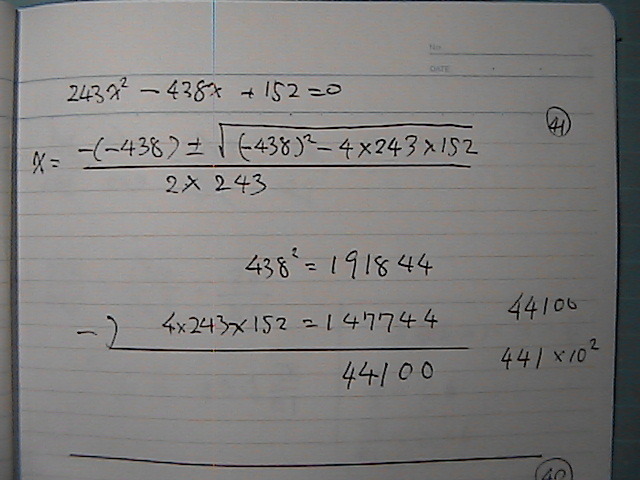 No.
DATE
243x² − 438x + 152 = 0
41
x = −(−438) ± √(−438)² − 4×243×152
2 × 243
438² = 191844
−) 4×243×152 = 147744
44100
44100
441 × 10²
40